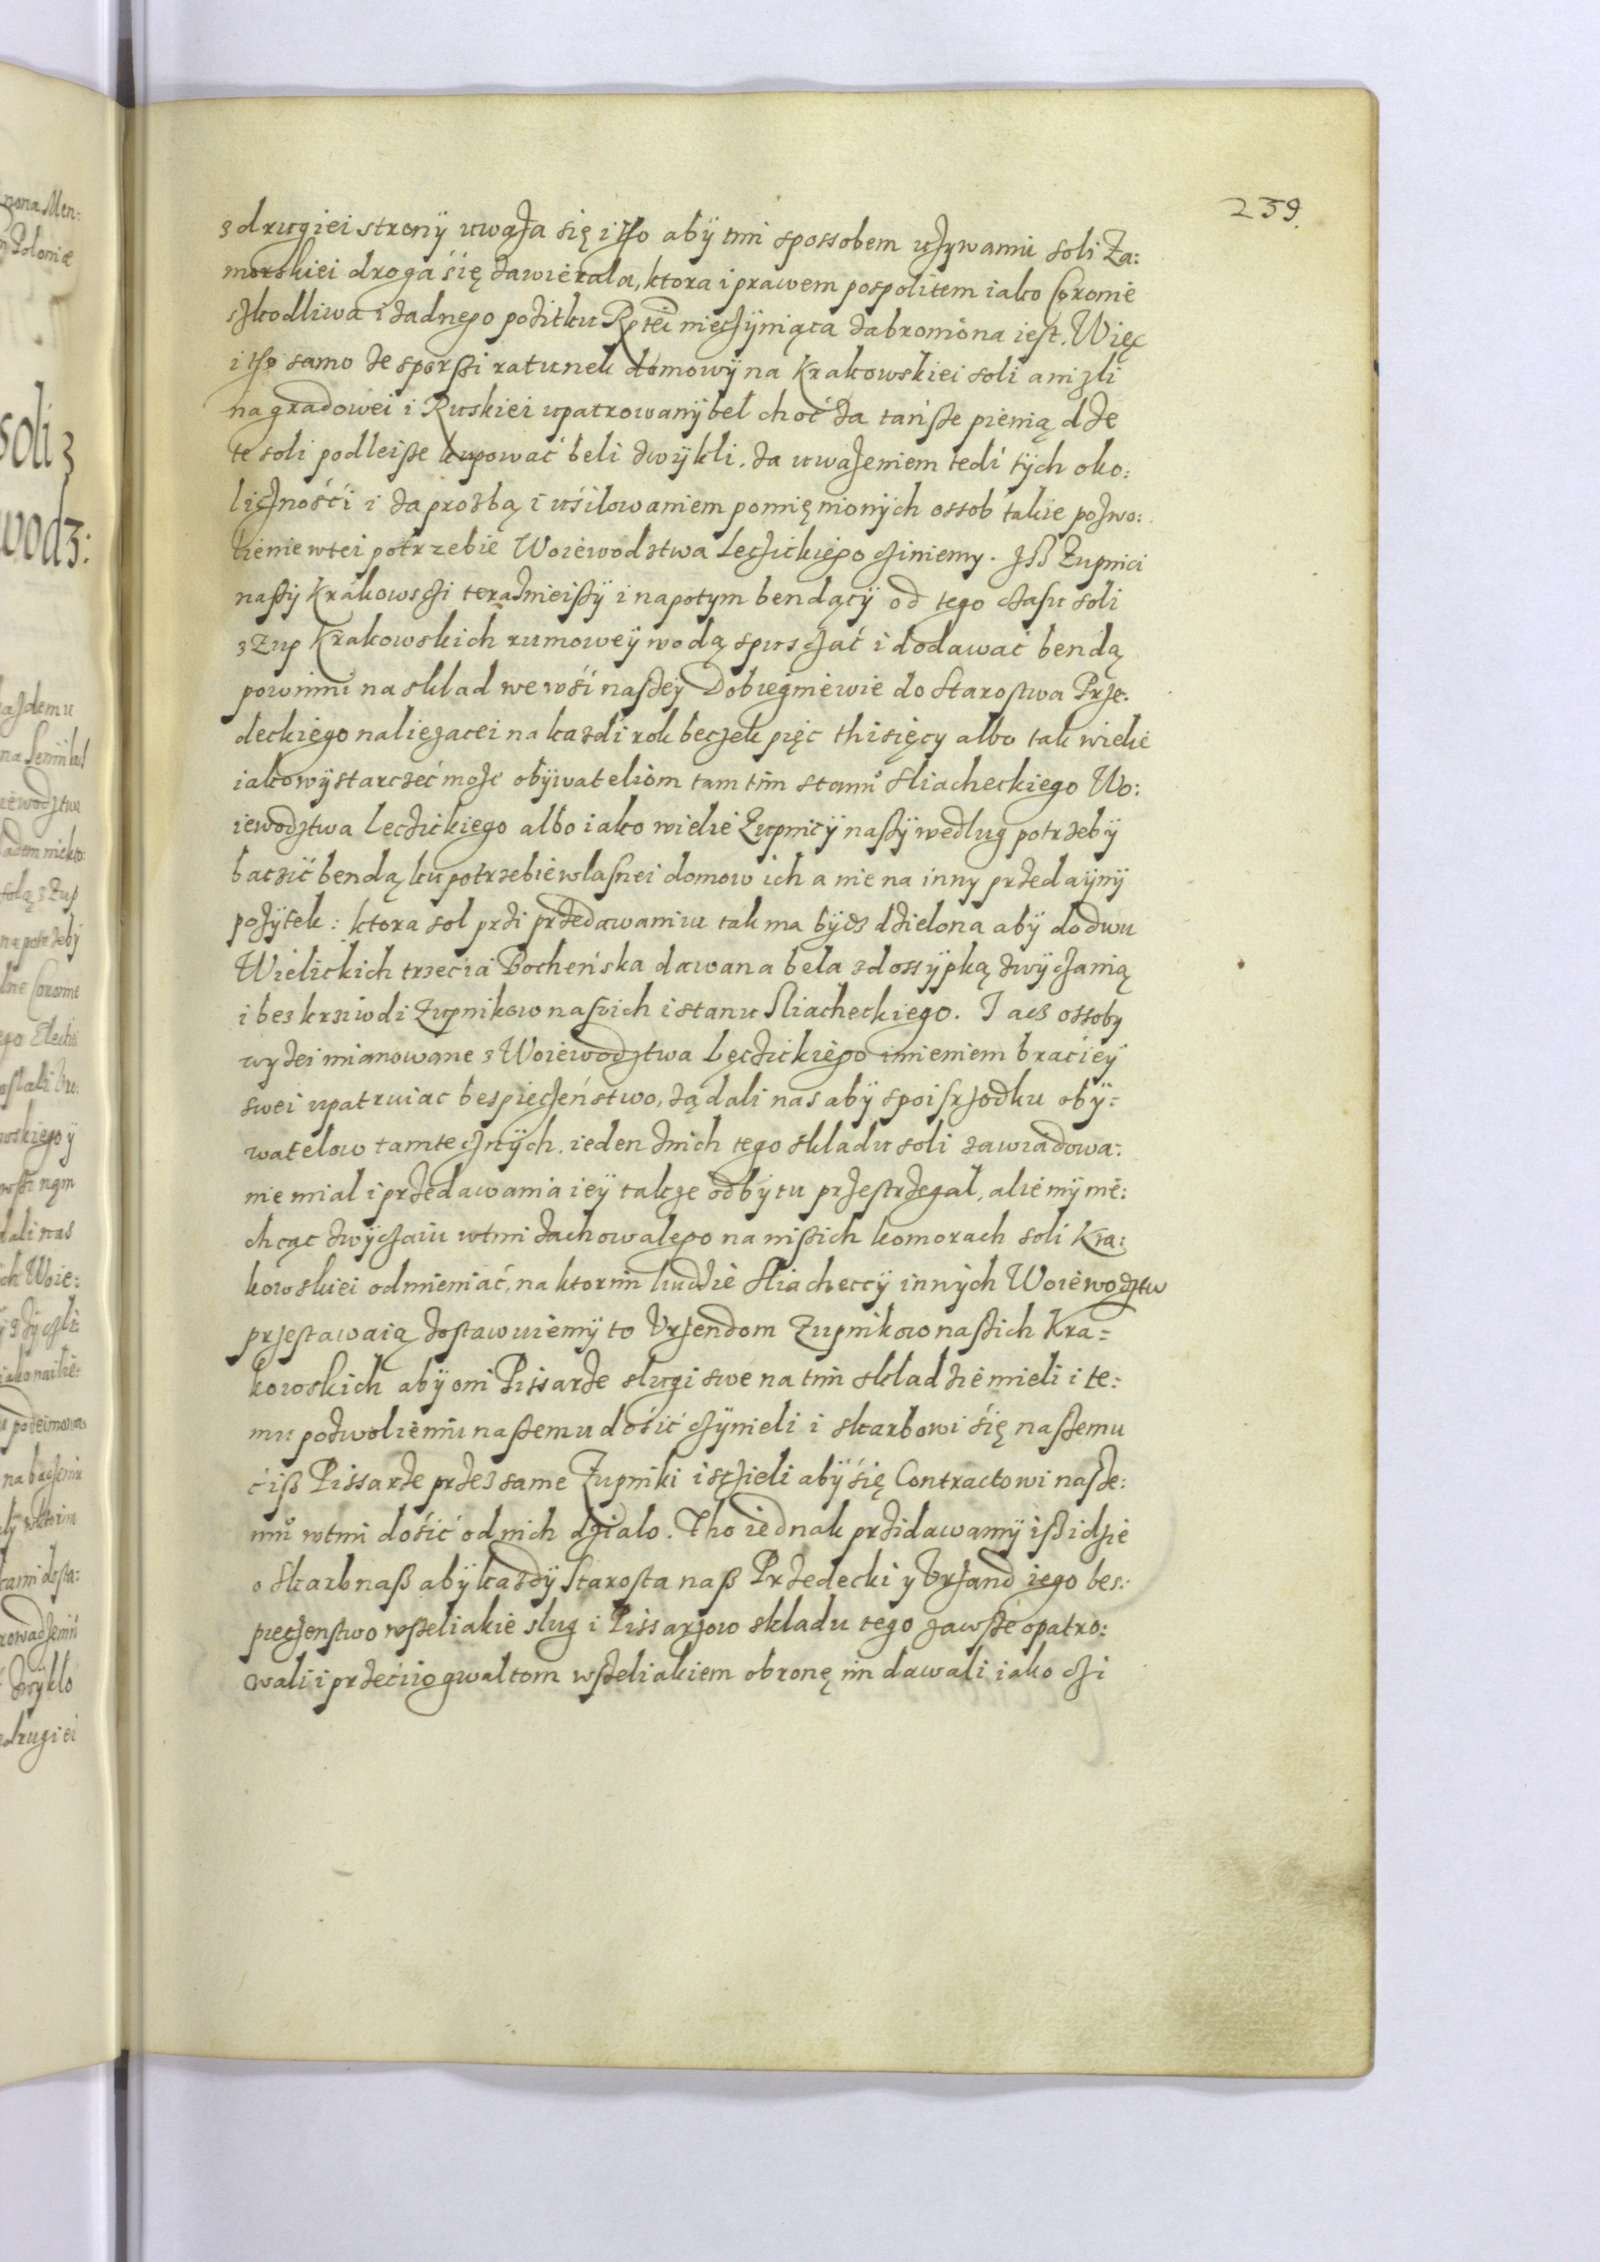 239.
z drugiei strony uważa się i tho aby tmi spossobem używaniu soli Za:
morskiei droga się zawierala, ktora i prawem pospolitem iako Coronie
szkodliwa i żadnego pożitku Rptei nieczyniąca zabroniona iest. Więc
i tho samo że sporszi ratunek domowy na Krakowskiei soli anizli
na gradowei i Ruskiei upatrowany bel choć za tańsze pieniądze
te soli podleisze kupować beli zwykli. Za uważeniem tedi tych oko:
liczności i za prozbą i usilowaniem pomięnionych ossob takie pozwo:
lienie wtei potrzebie Woiewodztwa Leczickiego cziniemy. Iß Zupnici
naszy Krakowsczi teraznieiszy i napotym bendący od tego czasu soli
z Zup Krakowskich rumowey wodą spusczać i dodawać bendą
powinni na sklad we wsi naszey Dobiegniewie do Starostwa Prze:
deckiego naliezacei na kazdi rok beczek pięc thisięcy albo tak wielie
iako wystarczeć może obywateliom tamtim stanu Sliacheckiego Wo:
iewodztwa Leczickiego albo iako wielie Zupnicy naszy według potrzeby
baczić bendą ku potrzebie wlasnei domow ich a nie na inny przedayny
pożytek: ktora sol przi przedawaniu tak ma bydz dzielona aby do dwu
Wielickich trzecia Bocheńska dawana bela z dossypką zwyczanią
i bes krziwdi Zupnikow naszich i stanu Sliacheckiego. I acz ossoby
wyżei mianowane z Woiewodztwa Lęczickiego imieniem braciey
swei upatruiac bespieczeństwo, żądali nas aby spoisrzodku oby:
watelow tamtecznych. ieden znich tego skladu soli zawiadowa:
nie mial i przedawania iey takze odbytu przestrzegal, alie my nie:
chcąc zwyczaiu wtmi zachowalego na niszich komorach soli Kra:
kowskiei odmieniać, na ktorim liudzie Sliacheccy innych Woiewodztw
przestawaią zostawuiemy to Vrzendom Zupnikow naszich Kra:
kowskich aby oni Pissarze slugi swe na tmi skladzie mieli i te:
mu pozwolieniu naszemu dosić czynieli i skarbowi się naszemu
ciß Pissarze przez same Zupniki isczieli aby się Contractowi nasze:
mu wtmi dosić od nich dzialo. Tho iednak przidawamy iß idzie
o Skarb naß aby kazdy Starosta naß Przedecki y Vrzand iego bes:
pieczenstwo wszeliakie slug i Pissarzow skladu tego zawsze opatro:
wali i przeciio gwaltom wszeliakiem obronę im dawali iako czi